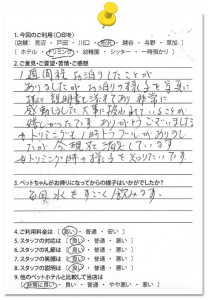 1. 今回のご利用(〇印を)
[店舗: 見沼 ・ 戸田 ・ 川口 ・ 所沢 ・ 越谷 ・ 与野 ・ 草加 ]
[ ホテル ・ トリミング ・ 幼稚園 ・ シッター ・ 一時預かり ]
2. ご意見・ご要望・苦情・ご感想
1週間程 お泊りしたことが
ありましたが お泊りの様子を写真に
撮り 説明書を添えてあり 非常に
感動しました。大事に扱われていることが
嬉しかったです ありがとうございました
トリミングも1時トラブルがありまし
たが 今現在 満足しています
トリミング時の様子を知りたいです。
3. ペットちゃんがお帰りになってからの様子はいかがでしたか?
毎回 水をすごく飲みます。
4. ご利用料金は [ 良い ・ 普通 ・ 悪い ]
5. スタッフの対応は [ 良い ・ 普通 ・ 悪い ]
6. スタッフの説明は [ 良い ・ 普通 ・ 悪い ]
7. スタッフの礼節は [ 良い ・ 普通 ・ 悪い ]
8. スタッフの身嗜は [ 良い ・ 普通 ・ 悪い ]
9. 他のペットホテルと比較して当店は
[ 非常に良い ・ 良い ・ 普通 ・ やや悪い ・ 悪い ]